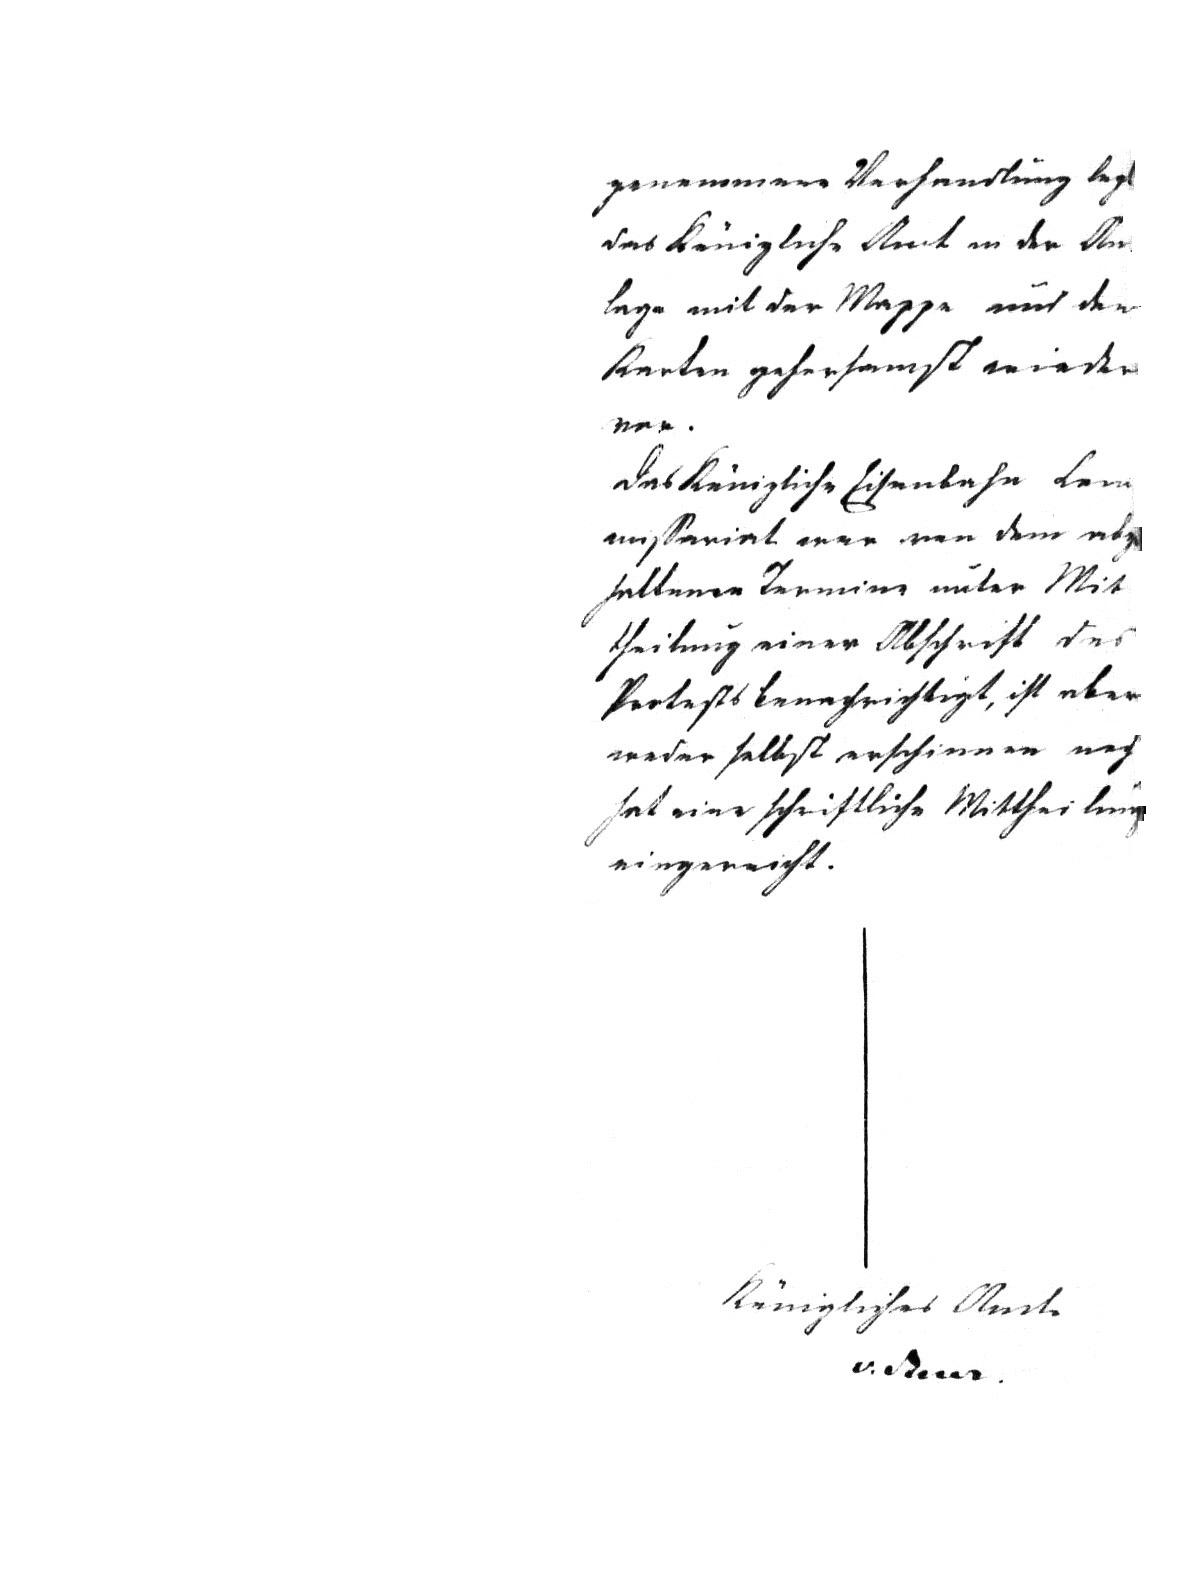 genommene Verhandlung legt
das Königliche Amt in der An
lage mit der Mappe und den
Karten gehorsamst wieder
vor.
Das Königliche Eisenbahn Com
missariat war von dem abge
haltenen Termine unter Mit
theilung einer Abschrift des
Protests benachrichtigt, ist aber
weder selbst erschienen noch
hat eine schriftliche Mittheilung
eingereicht.
Königliches Amt.
v.